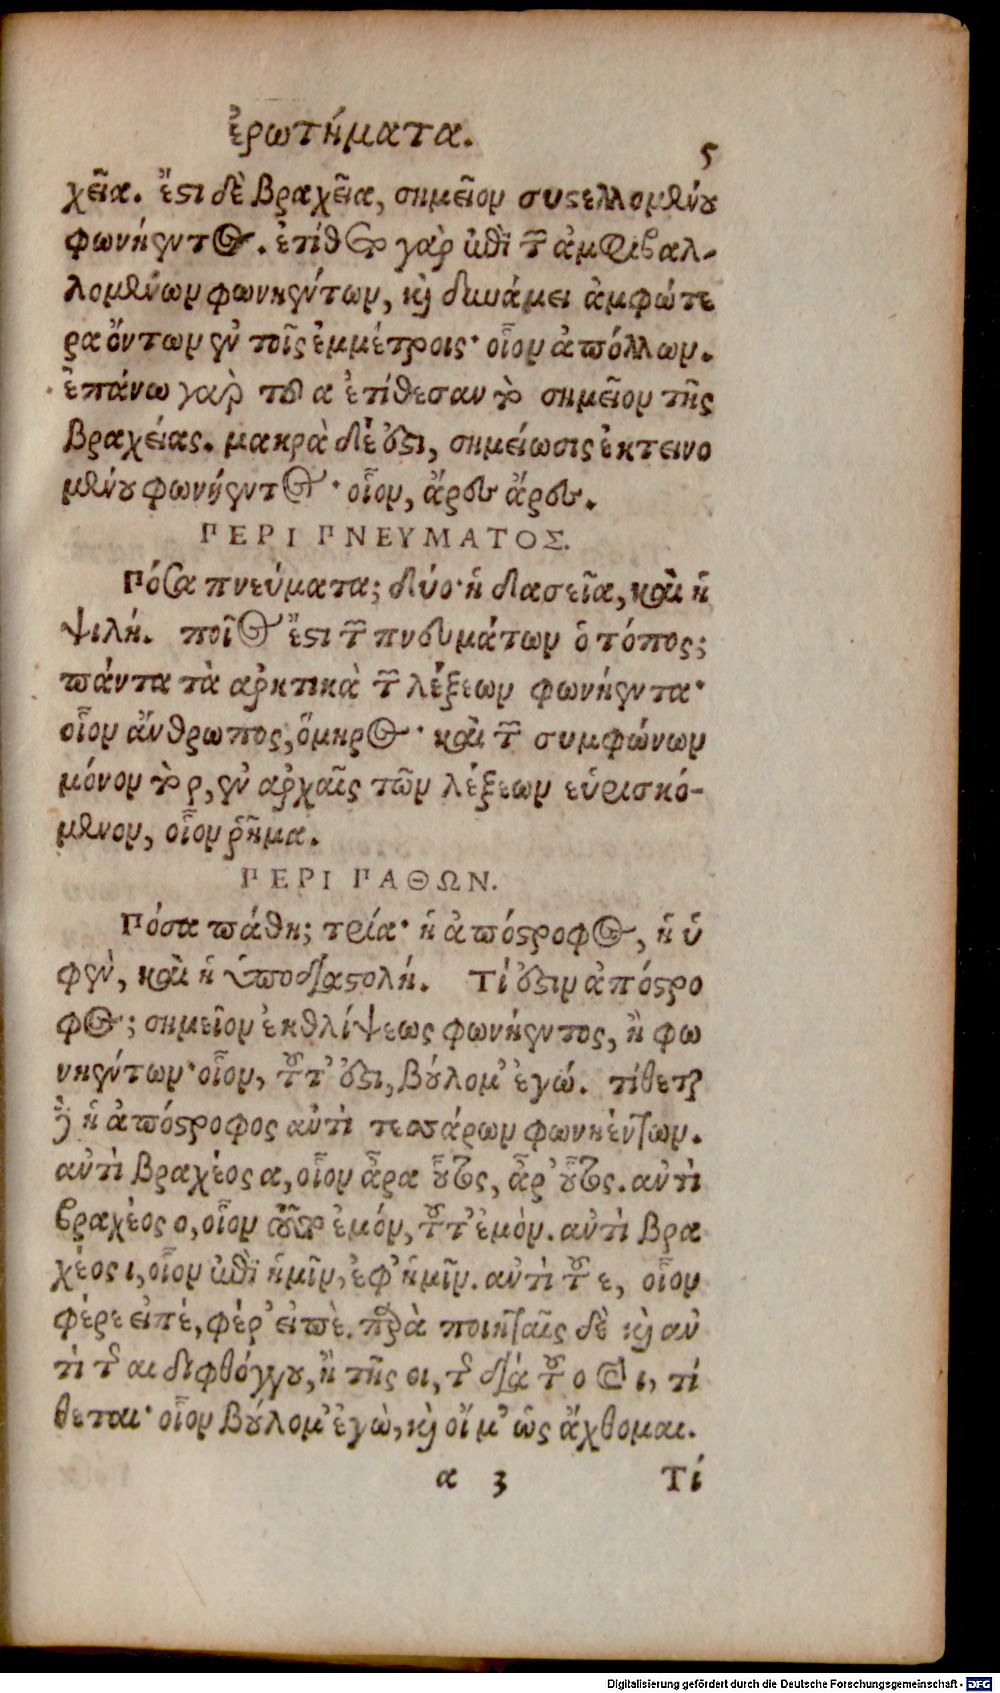 ἐρωτήματα.
5
χεῖα. ἔστι δὲ βραχεῖα, σημεῖον συστελλομένου
φωνήεντος. ἐτίθετο γὰρ ἐπὶ τῶν ἀμφιβαλ-
λομένων φωνηέντων, καὶ δυνάμει ἀμφότε
ρα ὄντων ἐν τοῖς ἐμμέτροις· οἷον ἀπόλλων.
ἐπάνω γὰρ τοῦ α ἐτίθεσαν τὸ σημεῖον τῆς
βραχείας. μακρὰ δέ ἐστι, σημείωσις ἐκτεινο
μένου φωνήεντος· οἷον, ἄρες ἄρες.
ΠΕΡΙ ΠΝΕΥΜΑΤΟΣ.
Πόσα πνεύματα; δύο· ἡ δασεῖα, καὶ ἡ
ψιλή. ποῖος ἔστι τῶν πνευμάτων ὁ τόπος;
πάντα τὰ ἀρκτικὰ τῶν λέξεων φωνήεντα·
οἷον ἄνθρωπος, ὅμηρος· καὶ τῶν συμφώνων
μόνον τὸ ρ, ἐν ἀρχαῖς τῶν λέξεων εὑρισκό-
μενον, οἷον ῥῆμα.
ΠΕΡΙ ΠΑΘΩΝ.
Πόσα πάθη; τρία· ἡ ἀπόστροφος, ἡ ὑ
φὲν, καὶ ἡ ὑποδιαστολή. Τί ἐστιν ἀπόστρο
φος; σημεῖον ἐκθλίψεως φωνήεντος, ἢ φω
νηέντων· οἷον, τοῦτ' ἔστι, βούλομ' ἐγώ. τίθεται
ἡ ἀπόστροφος ἀντὶ τεσσάρων φωνηέντων.
ἀντὶ βραχέος α, οἷον ἆρα οὗτος, ἆρ' οὗτος. ἀντὶ
βραχέος ο, οἷον τοῦτο ἐμόν, τοῦτ' ἐμόν. ἀντὶ βρα
χέος ι, οἷον ἐπὶ ἡμῖν, ἐφ' ἡμῖν. ἀντὶ τοῦ ε, οἷον
φέρε εἰπέ, φέρ' εἰπὲ. παρὰ ποιηταῖς δὲ καὶ ἀν
τὶ τῆς αι διφθόγγου, ἢ τῆς οι, τῆς διὰ τοῦ ο καὶ ι, τί
θεται· οἷον βούλομ' ἐγὼ, καὶ οἴ μ' ὡς ἄχθομαι.
α 3 Τί
Digitalisierung gefördert durch die Deutsche Forschungsgemeinschaft - DFG